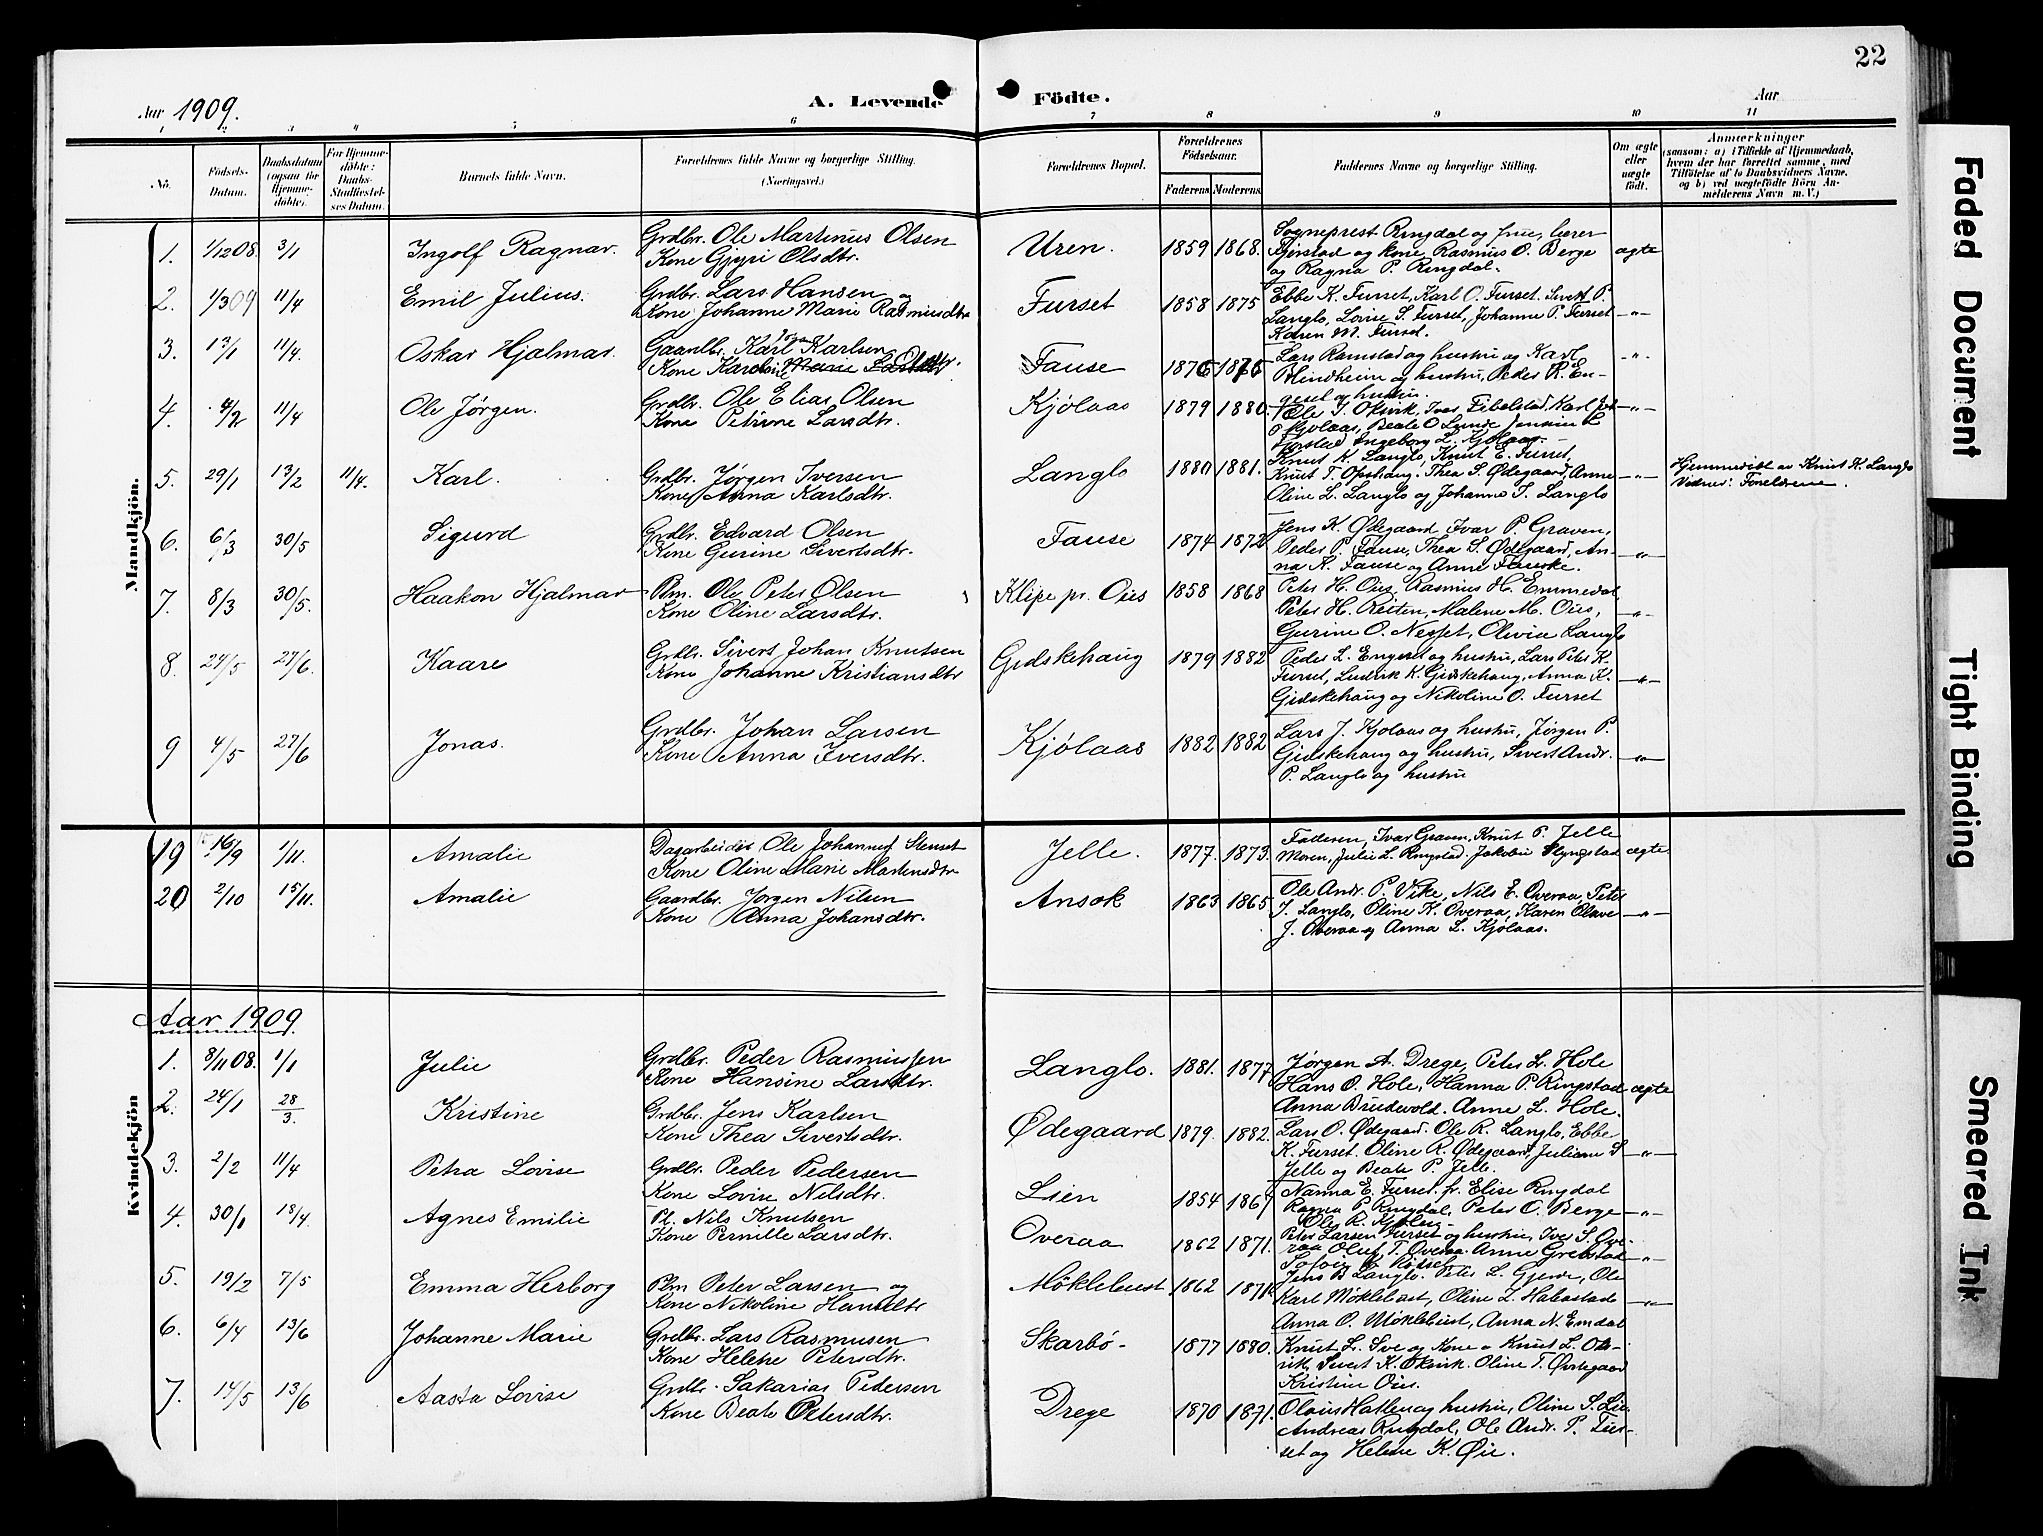 22
Aar 1909. A. Levende Födte. Aar
1 2 3 4 5 6 7 8 9 10 11
No. Födsels-Datum. Daabsdatum (ogsaa for Hjemmedöbte). For Hjemmedöbte: Daabs-Stadfæstelses Datum. Barnets fulde Navn. Forældrenes fulde Navne og borgerlige Stilling. (Næringsvei.) Forældrenes Bopæl. Forældrenes Födselsaar. Faderens Moderens Faddernes Navne og borgerlige Stilling. Om ægte eller uægte födt. Anmærkninger (saasom: a) i Tilfælde af Hjemmedaab, hvem der har forrettet samme, med Tilföielse af to Daabsvidners Navne, og b) ved uægtefödte Börn Anmelderens Navn m. V.)
Mandkjön.
1. 1/12 08. 3/1 Ingolf Ragnar. Grdbr. Ole Martinus Olsen Uren. 1859 1868. Sogneprest Ringdal og frue, lærer
Kone Gjyri Olsdtr. og kone, Rasmus O. Berge ægte
og Ragna P. Ringdal.
2. 1/3 09 11/4 Emil Julius. Grdbr. Lars Hansen og Furset 1858 1875 Ebbe K. Furset, Karl O. Furset. Sivert P.
Kone Johanne Marie Rasmusdtr Langlo, Lovise S. Furset, Johanne P. Furset -"-
Karen M. Furset.
3. 13/1 11/4. Oskar Hjalmar. Gaardbr. Karl Karlsen Fause 1876 1876 Lars Ramstad og hustru og Karl -"-
Kone Karoline Marie Olsdtr. Blindheim og hustru, Peder R. En-
geset og hustru.
4. 4/2 11/4 Ole Jørgen. Grdbr. Ole Elias Olsen Kjølaas 1879 1880. Ole J. Okvik, Iver Eibelstad, Karl Joh -"-
Kone Petrine Larsdtr. O Kjolaas, Beate O Lunde Jensine L
Ingeborg L. Kjolaas.
5. 29/1 13/2 11/4. Karl. Grdbr. Jørgen Iversen Langlo 1880 1881. Knut K. Langlo, Knut E. Furset, Hjemmedöbt av Knut K. Langlo
Kone Anna Karlsdtr. Knut T. Opshaug. Thea S. Ødegaard, Anne -"- Vidner: Foreldrene.
Oline L. Langlo og Johanne I. Langlo
6. 6/3 30/5 Sigurd Grdbr. Edvard Olsen Fause 1874 1872 Jens K. Ødegaard, Ivar P. Graven,
Kone Gurine Sivertsdtr. Peder P. Fause, Thea S. Ødegaard, An- -"-
na K. Fause og Anne Fauske.
7. 8/3 30/5. Haakon Hjalmar Plm. Ole Peter Olsen Klipe pr. Øies 1858 1868 Peter H. Øies, Rasmus H. Emmedal
Kone Oline Larsdtr. Peter H. Reiten, Malene M. Øies, -"-
Gurine O. Nesset, Olivia Langlo
8. 24/5 27/6. Kaare Grdbr. Sivert Johan Knutsen Gidskehaug 1879 1882 Peder L. Engeset og hustru, Lars Peter K.
Kone Johanne Kristiansdtr Furset, Ludvik K. Gidskehaug, Anna K. -"-
Gidskehaug og Nikoline O. Furset
9 4/5 27/6 Jonas. Grdbr. Johan Larsen Kjølaas 1882 1882 Lars J. Kjolaas og hustru, Jørgen P.
Kone Anna Iversdtr. Gidskehaug og hustru, Sivert Andr. -"-
P. Langlo og hustru
19 16/9 1/11. Amalie Dagarbeider Ole Johannes Stenset Jelle. 1877. 1873. Faderen, Ivar Graven, Knut P. Jelle
Kone Oline Marie Martensdtr Moren, Julie L. Ringstad. Jakobie Slyngstad ægte
20 2/10 15/11. Amalie Gaardbr. Jørgen Nilsen Ansok 1863 1865 Ole Andr. P. Vike, Nils E. Overaa, Peter
Kone Anna Johansdtr. J. Langlo, Oline K. Overaa, Karen Olave -"-
J. Overaa og Anna L. Kjolaas.
Aar 1909
Kvindekjön
1. 8/11 08. 1/1 Julie Grdbr. Peder Rasmussen Langlo. 1881. 1877 Jørgen A. Drege, Peter L. Hole
Kone Hansine Larsdtr. Hans O. Hole, Hanna P. Ringstad ægte
2. 24/1 28/3. Kristine Grdbr. Jens Karlsen Ødegaard 1879. 1882. Anna Brudevold. Anne L. Hole.
Kone Thea Sivertsdtr. Lars O. Ødegaard. Ole R. Langlo, Ebbe
K. Furset. Oline R. Ødegaard, Juliane S -"-
Jelle og Beate P. Jelle.
3. 2/2 11/4 Petra Lovise Grdbr. Peder Pedersen Lien 1854 1867 Nanna E. Furset. fr. Elise Ringdal
Kone Lovise Nilsdtr. Ragna P. Ringdal, Peter O. Berge -"-
4. 30/1 18/4. Agnes Emilie Pl. Nils Knutsen Overaa 1862 1871. Peter Larsen Furset og hustru, Iver S. Ove-
Kone Pernille Larsdtr. raa Oluf T. Overaa. Anne Grebstad -"-
5. 19/2 7/5 Emma Herborg Plm Peter Larsen og Møklebust 1862 1871. Jens B Langlo. Peter L. Gjerde, Ole
Kone Nikoline Hansdtr Karl Møklebust, Oline L. Habostad -"-
Anna O. Møklebust, Anna N. Emdal
6. 6/4 13/6 Johanne Marie Grdbr. Lars Rasmusen Skarbø- 1877 1880. Knut L. Sve og Kone Knut L. Ok-
Kone Helene Petersdtr. vik, Sivert K. Okvik. Oline T. Ødegaard
Kristine Øies.
7. 14/5 13/6 Aasta Lovise Grdbr. Sakarias Pedersen Drege 1870 1871. Olaus Hatlen og hustru, Oline S. Lie
Kone Beate Petersdtr. Andreas Ringdal, Ole Andr. P. Fur-
set og Helene K. Øie.
Faded Document
Tight Binding
Smeared Ink